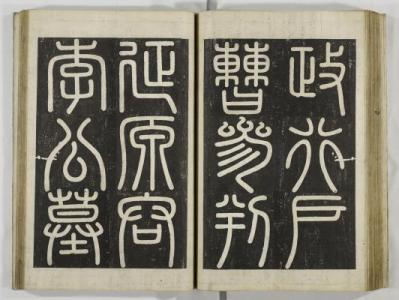 政行戶
曹參判
延原君
李公墓